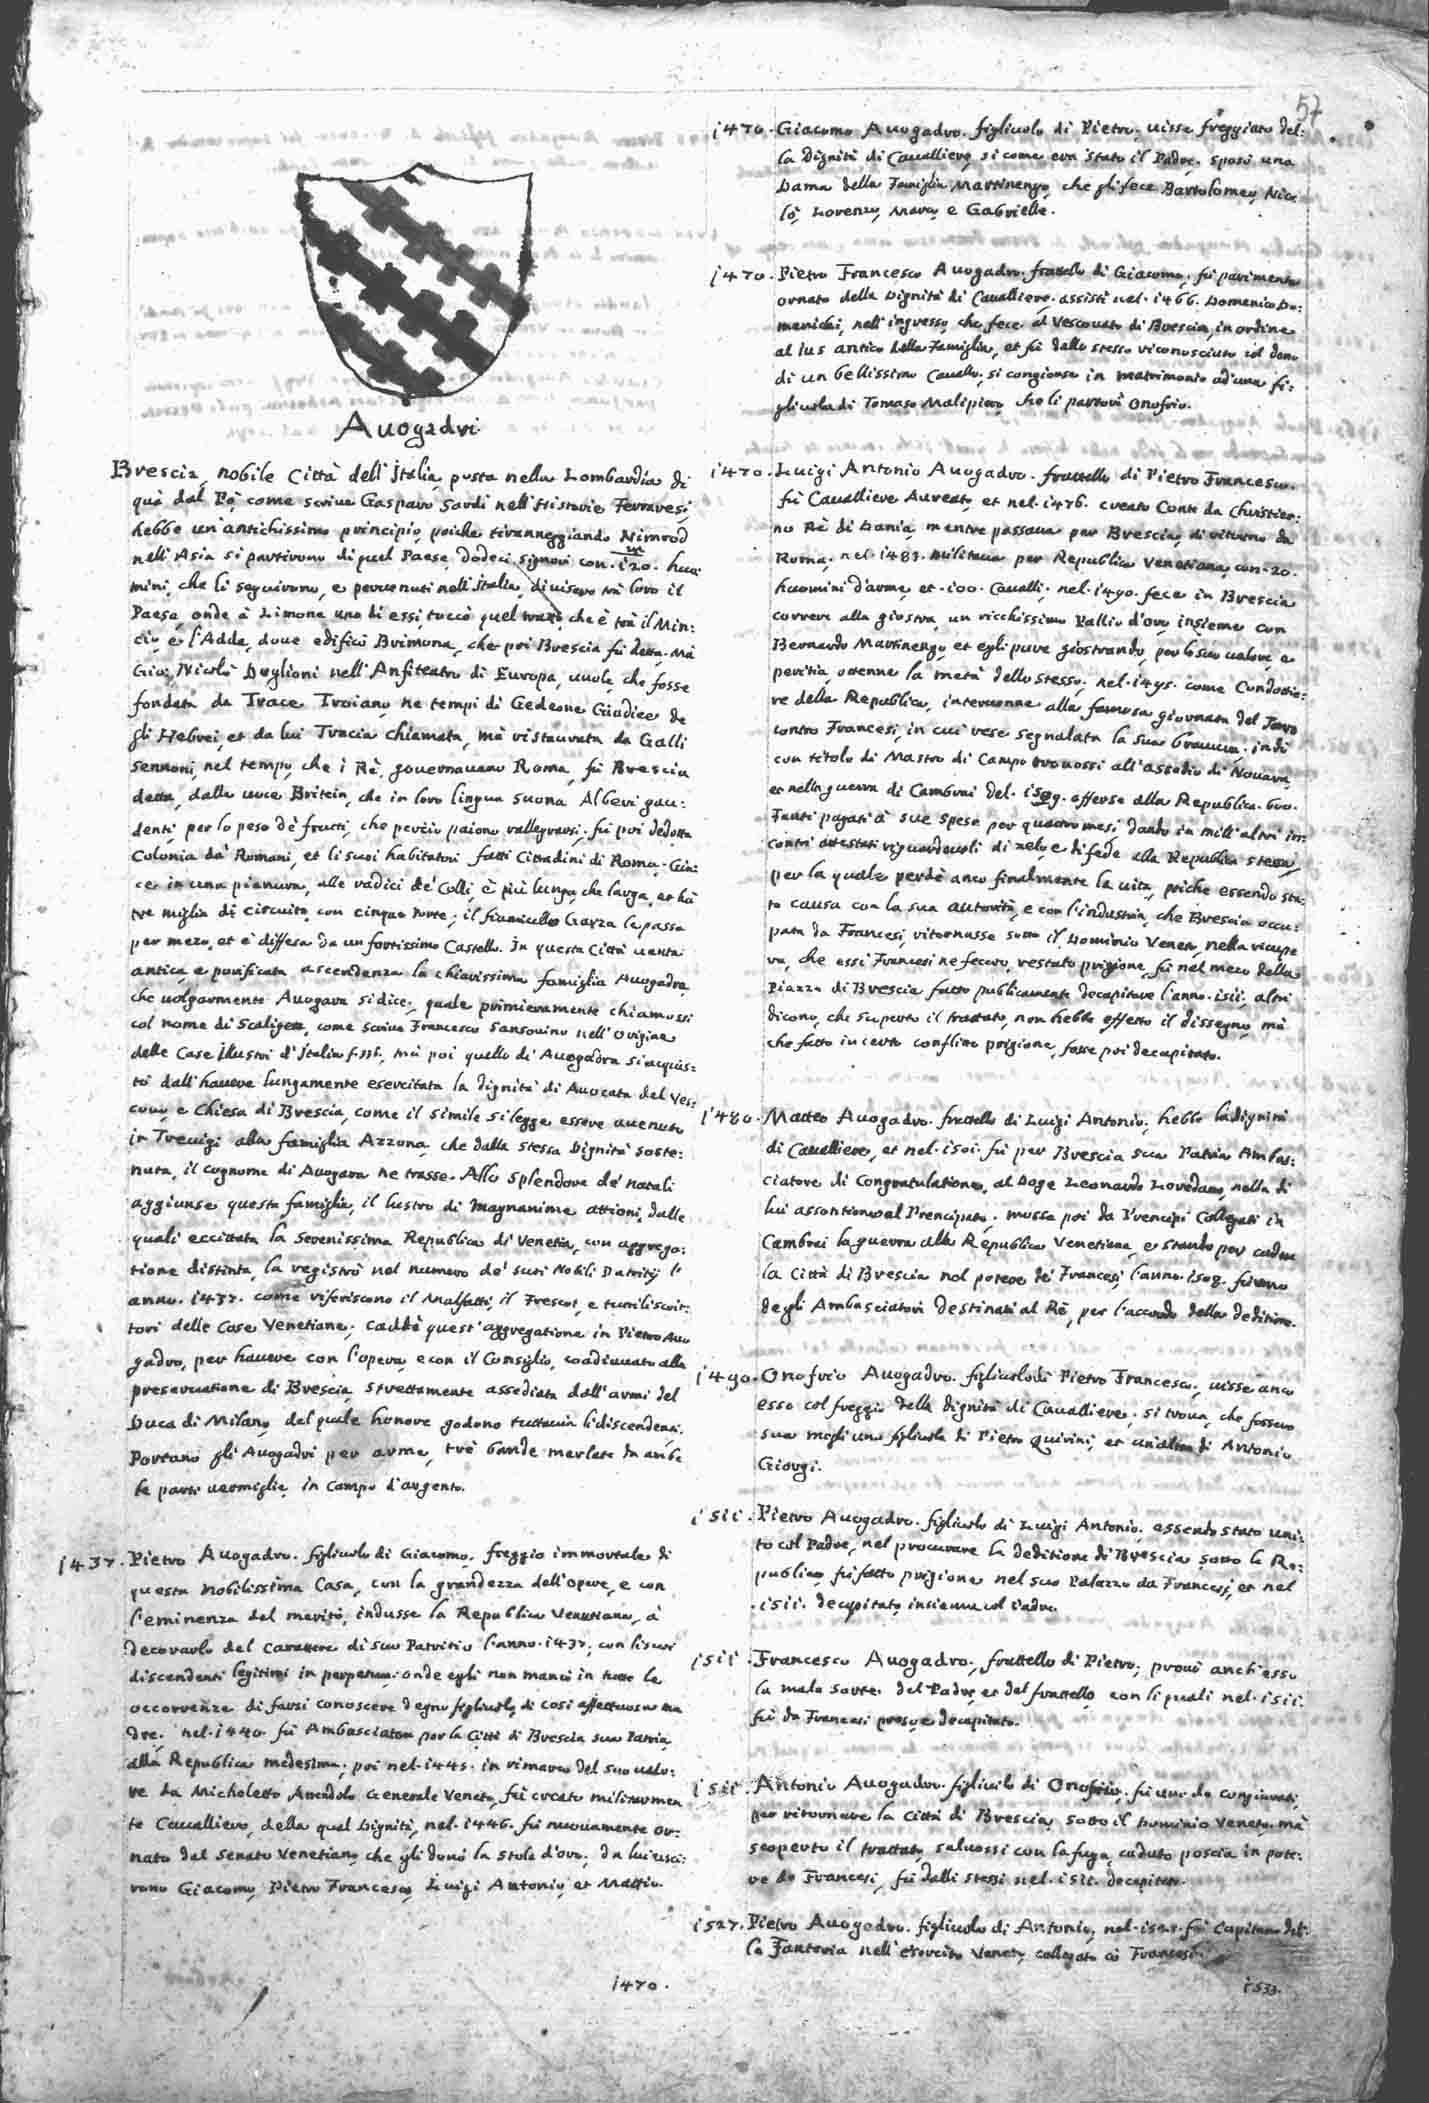 57
Auogadri.
Brescia, nobile Città dell'Italia, posta nella Lombardia di
quà dal Pò, come scriue Gasparo Sardi nell'Historie Ferraresi,
hebbe un'antichissimo principio, poiche tiranneggiando Nimrod
nell'Asia si partirono di quel Paese dodeci signori con .120. huo:
mini, che li seguirono, e peruenuti nell'Italia, diuisero trà loro il
Paese, onde à Limone uno di essi toccò quel trato, che è trà il Min:
cio, e l'Adda, doue edificò Brimona, che poi Brescia fù detta. Mà
Gio: Nicolò Doglioni nell'Anfiteatro di Europa, uuole, che fosse
fondata da Trace Troiano, ne tempi di Gedeone Giudice de
gli Hebrei, et da lui Tracia chiamata, mà ristaurata da Galli
Sennoni, nel tempo, che i Rè, gouernauano Roma, fù Brescia
detta, dalla uoce Britein, che in loro lingua suona Alberi gau:
denti, per lo peso dè frutti, che perciò paiono rallegrarsi, fù poi dedotta
Colonia da' Romani, et li suoi habitatori fatti Cittadini di Roma. Gia:
ce in una pianura, alle radici de' Colli, è più lunga, che larga, et hà
tre miglia di circuito, con cinque Porte; il fiumicello Garza la passa
per mezo, et è diffesa da un fortissimo Castello. In questa Città uanta
antica, e purificata ascendenza la chiarissima famiglia Auogadra,
che uolgarmente Auogara si dice, quale primieramente chiamossi
col nome di Scaligera, come scriue Francesco Sansouino nell'Origine
delle Case Illustri d'Italia, mà poi quello di Auogadra si acquis:
tò dall'hauere lungamente esercitata la dignità di Auocata del Ves:
couo, e Chiesa di Brescia, come il simile si legge essere auenuto
in Treuigi alla famiglia Azzona, che dalla stessa Dignità soste:
nuta, il cognome di Auogara ne trasse. Allo splendore de' natali
aggiunse questa famiglia, il lustro di magnanime attioni, dalle
quali eccitata la Serenissima Republica di Venetia, con aggrega:
tione distinta, la registrò nel numero de' suoi Nobili Patritij l'
anno. 1437. come riferiscono il Malfatti, il Frescot, e tutti li scrit:
tori delle Case Venetiane; caddè quest'aggregatione in Pietro Auo
gadro, per hauere con l'opera, e con il Consiglio, coadiuuato alla
preseruatione di Brescia, strettamente assediata dall'armi del
Duca di Milano, del quale honore godono tuttauia li discendenti.
Portano gli Auogadri per arme, trè bande merlate da ambe
le parti uermiglie, in campo d'argento.
1437. Pietro Auogadro. figliuolo di Giacomo, freggio immortale di
questa nobilissima Casa, con la grandezza dell'opere, e con
l'eminenza del merito, indusse la Republica Venetiana, à
decorarlo del Carattere di suo Patritio l'anno. 1437. con li suoi
discendenti legitimi in perpetuo; onde egli non mancò in tutte le
occorrenze di farsi conoscere degno figliuolo di così affettuosa ma
dre. nel. 1440. fù Ambasciatore per la Città di Brescia sua Patria,
alla Republica medesima; poi nel. 1445. in rimarco del suo ualo:
re da Micheletto Attendolo Generale Veneto, fù creato militarmen
te Caualliero, della qual Dignità, nel. 1446. fù nuouamente or:
nato dal Senato Venetiano, che gli donò la stola d'oro; da lui usci:
rono Giacomo, Pietro Francesco, Luigi Antonio, et Matteo.
1470.
1470. Giacomo Auogadro. figliuolo di Pietro, uisse freggiato del:
la Dignità di Caualliero, si come era stato il Padre. sposò una
Dama della Famiglia Martinengo, che gli fece Bartolomeo, Nico
lò, Lorenzo, Marco, e Gabrielle.
1470. Pietro Francesco Auogadro. frattello di Giacomo, fù parimente
ornato della Dignità di Caualliero. assistì nel. 1466. Domenico Do:
menichi, nell'ingresso, che fece al Vescouato di Brescia, in ordine
al Ius antico della Famiglia, et fù dallo stesso riconosciuto col dono
di un bellissimo Cauallo, si congionse in matrimonio ad una fi:
gliuola di Tomaso Malipiero che li partorì Onofrio.
1470. Luigi Antonio Auogadro. frattello di Pietro Francesco.
fù Caualliere Aureato, et nel. 1476. creato Conte da Christier:
no Rè di Dania, mentre passaua per Brescia, di ritorno da
Roma; nel. 1483. militaua per Republica Venetiana, con. 20.
huomini d'arme, et. 100. Caualli. nel. 1490. fece in Brescia
correre alla giostra, un ricchissimo Pallio d'oro, insieme con
Bernardo Martinengo, et egli pure giostrando, per lo suo ualore, e
peritia, ottenne la metà dello stesso; nel. 1495. come Condottie:
re della Republica, interuenne alla famosa giornata del Taro
contro Francesi, in cui rese segnalata la sua brauura. indi
con titolo di Mastro di Campo trouossi all'assedio di Nouara,
et nella guerra di Cambrai del. 1509. offerse alla Republica. 600.
Fanti pagati à sue spese per quattro mesi, dando in mill'altri in:
contri attestati riguardeuoli di zelo, e di fede alla Republica stessa,
per la quale perdè anco finalmente la uita, poiche essendo sta:
to causa con la sua autorità, e con l'industria, che Brescia occu:
pata da Francesi, ritornasse sotto il Dominio Veneto, nella ricupe
ra, che essi Francesi ne fecero, restato prigione, fù nel mezo della
Piazza di Brescia fatto publicamente decapitare l'anno. 1511. altri
dicono, che scuperto il trattato, non hebbe effetto il dissegno, mà
che fatto in certo conflitto prigione, fosse poi decapitato.
1480. Matteo Auogadro. frattello di Luigi Antonio; hebbe la dignità
di Caualliero, et nel. 1501. fù per Brescia sua Patria Ambas:
ciatore di Congratulatione, al Doge Leonardo Loredano, nella di
lui assontione al Prencipato. mossa poi da Prencipi Collegati in
Cambrai la guerra alla Republica Venetiana, e stando per cadere
la Città di Brescia nel potere de' Francesi, l'anno. 1509. fù uno
degli Ambasciatori destinati al Rè, per l'accordo della deditione.
1490. Onofrio Auogadro. figliuolo di Pietro Francesco, uisse anco
esso col freggio della dignità di Caualliere; si troua, che fossero
sue mogli una figliuola di Pietro Quirini, et un'altra di Antonio
Giorgi.
1511. Pietro Auogadro. figliuolo di Luigi Antonio; essendo stato uni:
to col Padre, nel procurare la deditione di Brescia sotto la Re:
publica, fù fatto prigione nel suo Palazzo da Francesi, et nel
. 1511. decapitato insieme col Padre.
1511. Francesco Auogadro. frattello di Pietro; prouò anch'esso
la mala sorte del Padre, et del frattello, con li quali nel. 1511.
fù da Francesi preso, e decapitato.
1511. Antonio Auogadro. figliuolo di Onofrio. fù uno de congiurati,
per ritornare la Città di Brescia, sotto il Dominio Veneto. mà
scoperto il trattato, saluossi con la fuga, caduto poscia in pote:
re de Francesi, fù dalli stessi nel. 1511. decapitato.
1527. Pietro Auogadro. figliuolo di Antonio, nel. 1527. fù Capitano del:
la Fanteria nell'esercito Veneto, collegato cò Francesi.
1533.